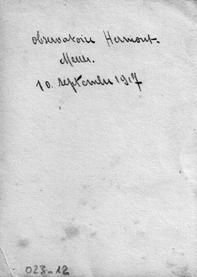 observatoire Hermont.
10 septembre 1917
023-12